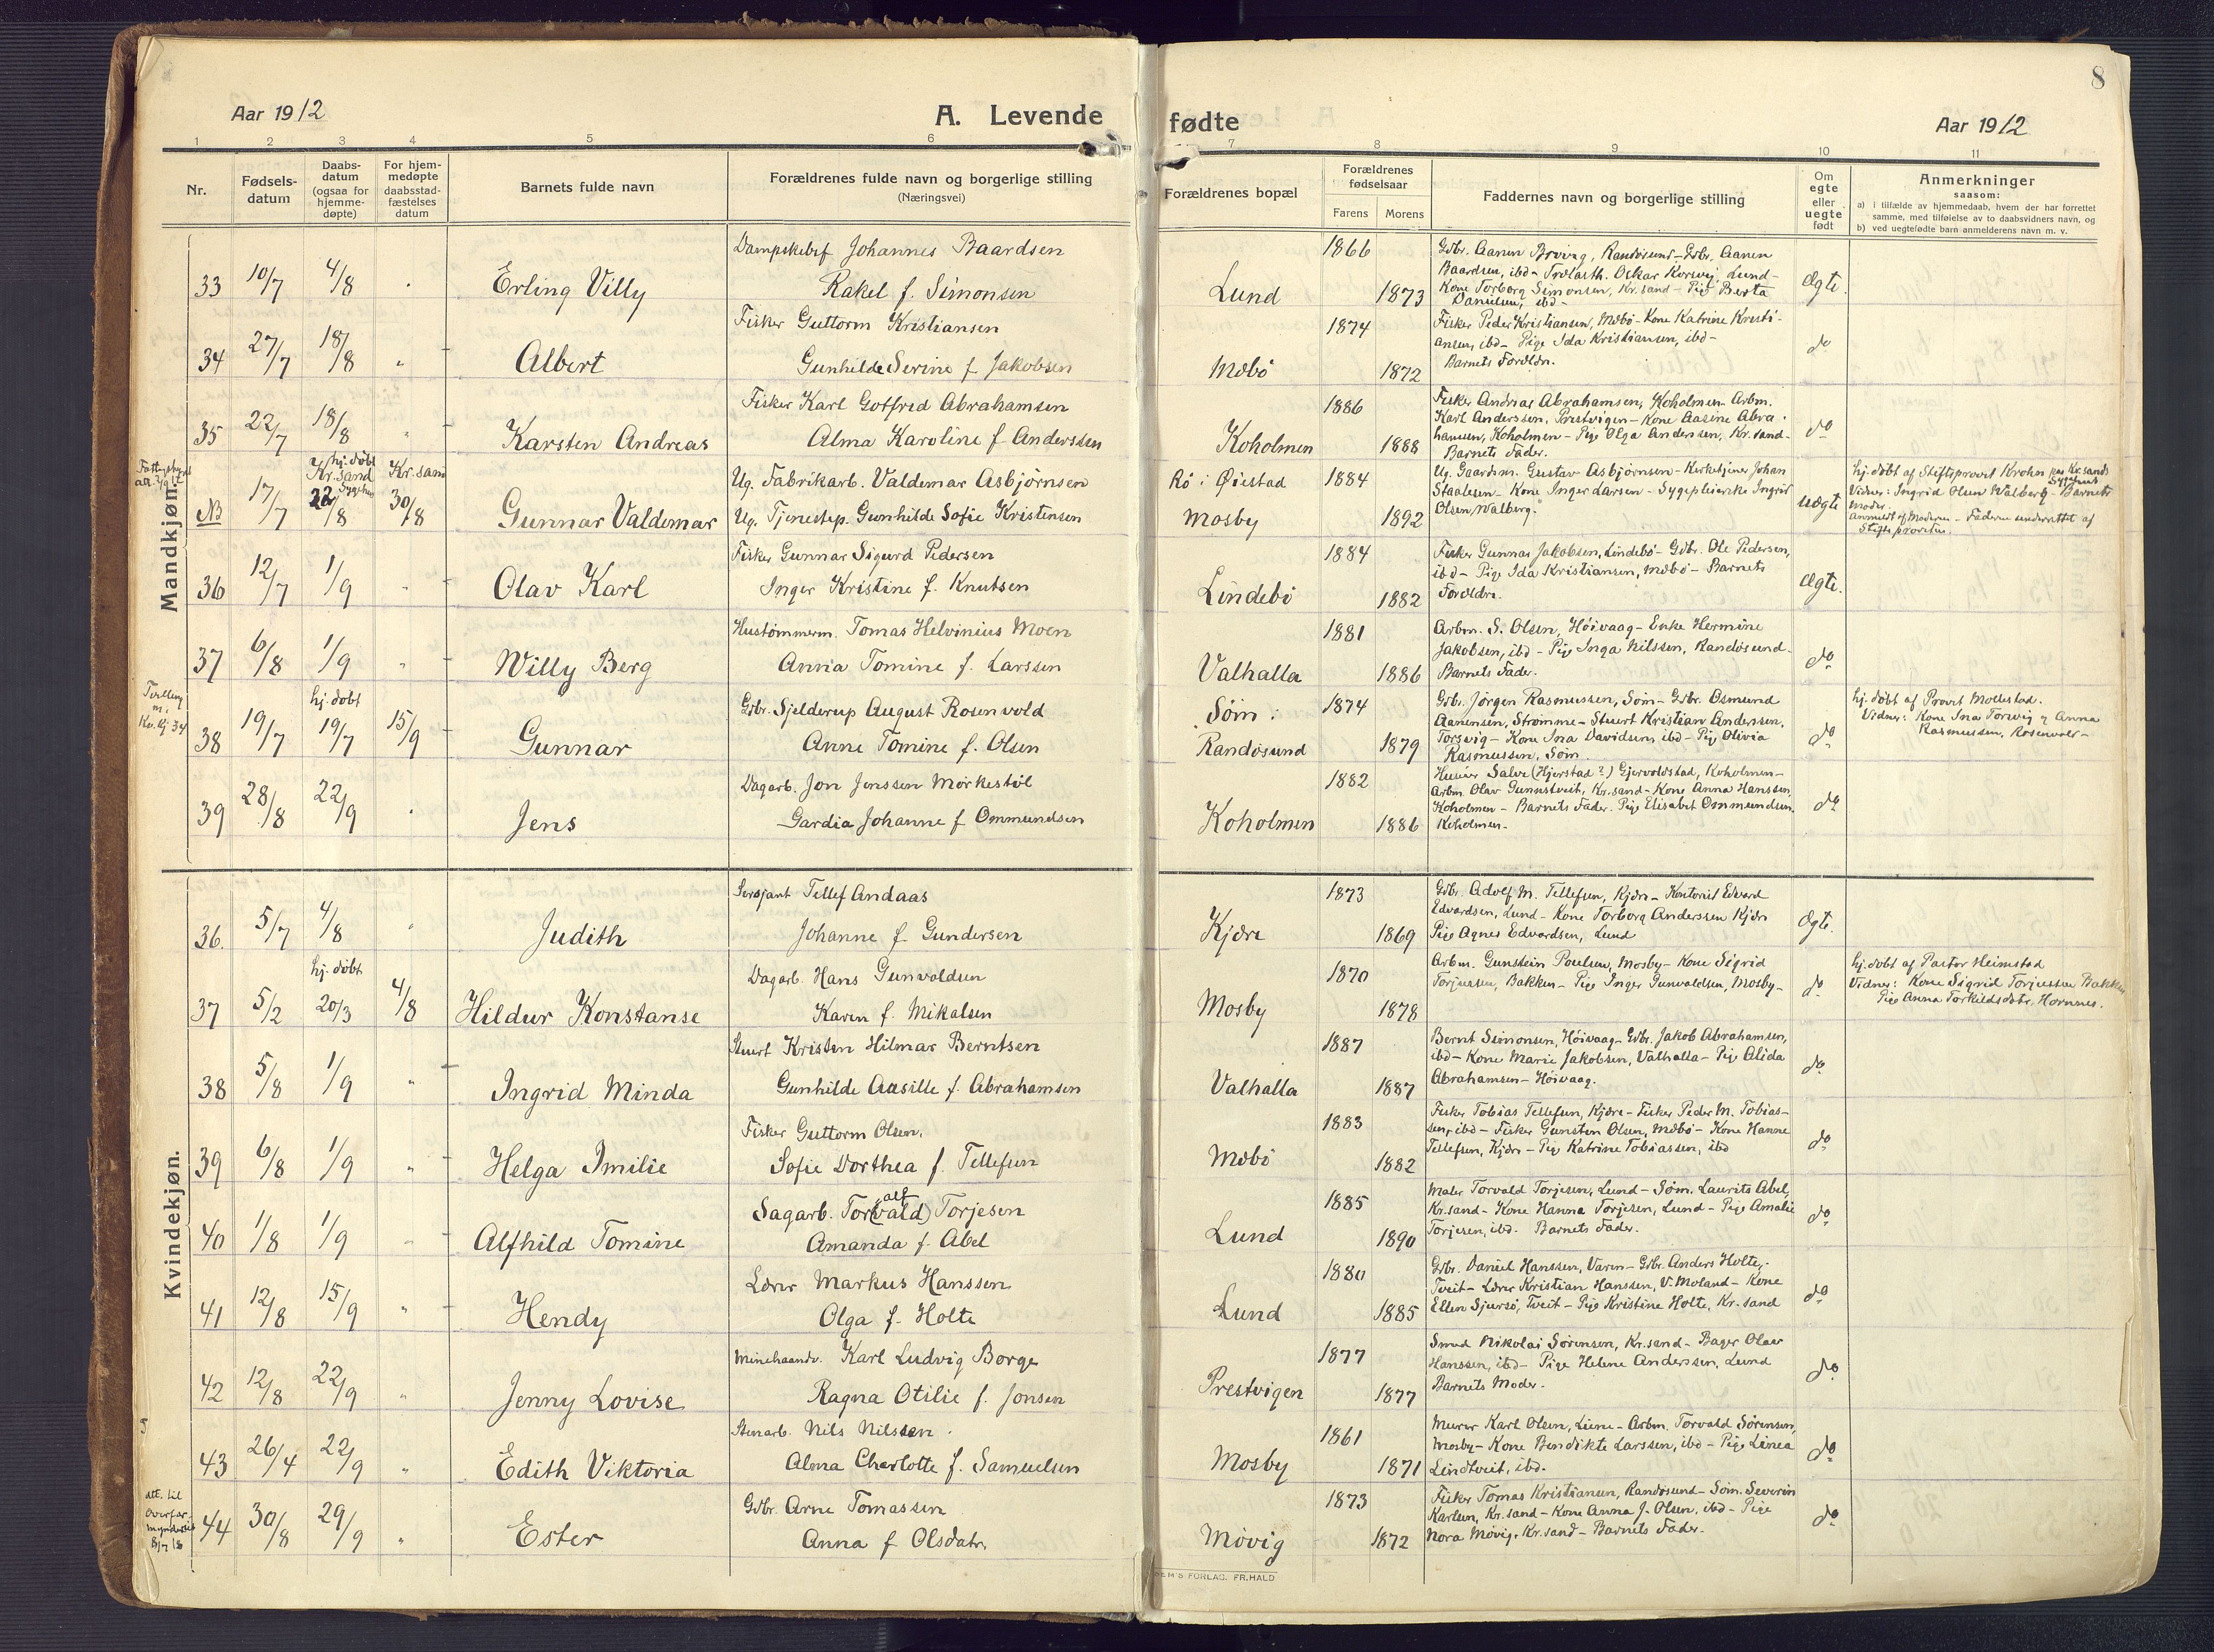 8
Aar 1912
A. Levende
fødte
Aar 1912
1 2 3 4 5 6 7 8 9 10 11
Nr.
Fødsels-
datum
Daabs-
datum
(ogsaa for
hjemme-
døpte)
For hjem-
medøpte
daabsstad-
fæstelses
datum
Barnets fulde navn
Forældrenes fulde navn og borgerlige stilling
(Næringsvei)
Forældrenes bopæl
Forældrenes
fødselsaar
Farens Morens
Faddernes navn og borgerlige stilling
Om
egte
eller
uegte
født
Anmerkninger
saasom:
a) i tilfælde av hjemmedaab, hvem der har forrettet
samme, med tilføielse av to daabsvidners navn, og
b) ved uegtefødte barn anmelderens navn m. v.
Mandkjøn.
33 10/7 4/8 Erling Villy
Dampskibsf Johannes Baardsen
Rakel f. Simonsen
Lund 1866 1873
Gdbr. Aanen Brovig, Randøsund - Gdbr. Aanen
Baardsen, ibd - Oskar Korsvig, Lund -
Kone Torborg Simonsen, Kr.sand - Pige Berta
Danielsen, ibd -
Ægte.
34 27/7 18/8 " Albert
Fisker Guttorm Kristiansen
Gunhilde Serine f Jakobsen
Mæbø 1874 1872
Fisker Peder Kristiansen, Mæbø - Kone Katrine Kristi-
ansen, ibd - Pige Ida Kristiansen, ibd -
Barnets Forældre.
do
35 22/7 18/8 " Karsten Andreas
Fisker Karl Gotfred Abrahamsen
Alma Karoline f Anderssen
Koholmen 1886 1888
Fisker Andreas Abrahamsen, Koholmen - Arbm.
Karl Anderssen, Prestvigen - Kone Aasine Abra-
hamsen, Koholmen - Pige Olga Anderssen, Kr.sand -
Barnets Fader.
do
NB 17/7 hj. døbt Kr.sand Sygehus 22/8 Kr.sand 30/8 Gunnar Valdemar
Ug. Fabrikarb. Valdemar Asbjørnsen
Ug. Tjenestep. Gunhilde Sofie Kristensen
Rø i Øiestad 1884
Mosby 1892
Ug. Gaardm. Gustav Asbjørnsen - Kirketjener Johan
Staalesen - Kone Inger Larsen - Sygepleierske Ingrid
Olsen Walberg.
uægte
hj. døbt af Stiftsprovst Krohn paa Kr.sands
Sygehus
Vidner: Ingrid Olsen Walberg - Barnets
Moder.
Anmeldt af Moderen - Faderen underrettet af
Stiftsprovsten.
36 12/7 1/9 " Olav Karl
Fisker Gunnar Sigurd Pedersen
Inger Kristine f. Knutsen
Lindebø 1884 1882
Fisker Gunnar Jakobsen, Lindebø - Gdbr. Ole Pedersen,
ibd - Pige Ida Kristiansen, Mæbø - Barnets
Forældre.
Ægte.
37 6/8 1/9 " Willy Berg
Hustømmerm. Tomas Helvinius Moen
Anna Tomine f. Larssen
Valhalla 1881 1886
Arbm. S. Olsen, Høivaag - Enke Hermine
Jakobsen, ibd - Pige Inga Nilssen, Randøsund -
Barnets Fader.
do
Tvilling
m.
Kv.kj 34
38 19/7 hj. døbt 19/7 15/9 Gunnar
Gdbr. Sjelderup August Rosenvold
Anne Tomine f. Olsen
Søm i
Randøsund 1874 1879
Gdbr. Jørgen Rasmussen, Søm - Gdbr. Osmund
Aanensen, Strømme - Stuert Kristian Anderssen,
Torsvig - Kone Ina Davidsen, ibd - Pige Olivia
Rasmussen, Søm.
do
hj. døbt af Provst Mollestad.
Vidner: Kone Ina Torsvig & Anna
Rasmussen, Rosenvold -
39 28/8 22/9 " Jens
Dagarb. Jon Jenssen Mørkestøl
Gardia Johanne f Ommundsen
Koholmen 1882 1886
Husier Salve (Hjerstad?) Gjervoldstad, Koholmen -
Arbm Olav Gunnstveit, Kr.sand - Kone Anna Hanssen,
Koholmen - Barnets Fader. Pige Elisabet Ommundsen,
Koholmen.
do
Kvindekjøn.
36. 5/7 4/8 " Judith
Sersjant Tellef Andaas
Johanne f. Gundersen
Kjære 1873 1869
Gdbr. Adolf M. Tellefsen, Kjære - Kontorist Edvard
Edvardsen, Lund - Kone Torborg Anderssen Kjære
Pige Agnes Edvardsen, Lund
Ægte.
37 5/2 hj. døbt 20/3 4/8 Hildur Konstanse
Dagarb. Hans Gunvaldsen
Karen f. Mikalsen
Mosby 1870 1878
Arbm. Gunstein Poulsen, Mosby - Kone Sigrid
Torjussen, Bakken - Pige Inger Gunvaldsen, Mosby -
do
hj. døbt af Pastor Heimstad
Vidner: Kone Sigrid Torjussen Bakken
Pige Anna Torkildsdatr, Hornnes.
38 5/8 1/9 " Ingrid Minda
Stuert Kristen Hilmar Berntsen
Gunhilde Aasille f. Abrahamsen
Valhalla 1887 1887
Bernt Simonsen, Høivaag - Gdbr. Jakob Abrahamsen,
ibd - Kone Marie Jakobsen, Valhalla - Pige Alida
Abrahamsen - Høivaag.
do
39 6/8 1/9 " Helga Imilie
Fisker Guttorm Olsen.
Sofie Dorthea f. Tellefsen
Mæbø 1883 1882
Fisker Tobias Tellefsen, Kjære - Fisker Peder M. Tobias-
sen, ibd - Fisker Gunsten Olsen, Mæbø - Kone Hanne
Tellefsen, Kjære - Pige Katrine Tobiassen, ibd
do
40 1/8 1/9 " Alfhild Tomine
Sagarb. Tor(vald) alf Torjesen
Amanda f. Abel
Lund 1885 1890
Maler Torvald Torjesen, Lund - Søm. Laurits Abel,
Kr.sand - Kone Hanna Torjesen, Lund - Pige Amalie
Torjesen, ibd. Barnets Fader.
do
41 12/8 15/9 " Hendy
Lærer Markus Hanssen
Olga f. Holte
Lund 1880 1885
Gdbr. Daniel Hanssen, Varen - Gdbr. Anders Holte,
Tveit - Lærer Kristian Hanssen, V. Moland - Kone
Ellen Sjursø, Tveit - Pige Kristine Holte, Kr.sand
do
42 12/8 22/9 " Jenny Lovise
Minehaandv. Karl Ludvig Borge
Ragna Otilie f. Jonsen
Prestvigen 1877 1877
Smed Nikolai Sørensen, Kr.sand - Bager Olav
Hanssen, ibd - Pige Helene Anderssen, Lund
Barnets Moder.
do
43 26/4 22/9 " Edith Viktoria
Stenarb. Nils Nilssen
Alma Charlotte f. Samuelsen
Mosby 1861 1871
Murer Karl Olsen, Liene - Arbm. Torvald Sørensen,
Mosby - Kone Bendikte Larssen, ibd - Pige Linea
Lindtveit, ibd.
do
att. til
overfor-
44 30/8 29/9 " Ester
Gdbr. Arne Tomassen
Anna f Olsdatr.
Møvig 1873 1872
Fisker Tomas Kristiansen, Randøsund - Søm. Severin
Karlsen, Kr.sand - Kone Anna J. Olsen, ibd - Pige
Nora Møvig, Kr.sand - Barnets Fader.
do
SEM'S FORLAG. FR.HALD